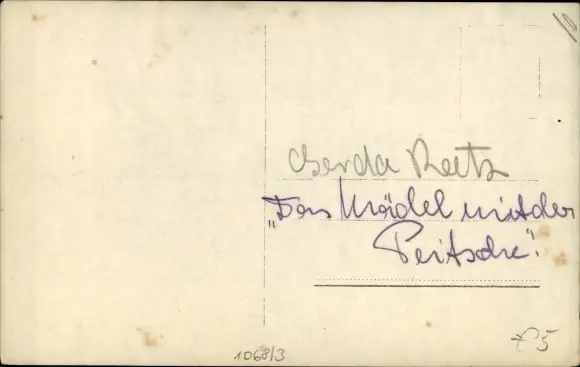 10
Gerda Reetz
„Das Mädel mit der
Peitsche".
1068/3
5